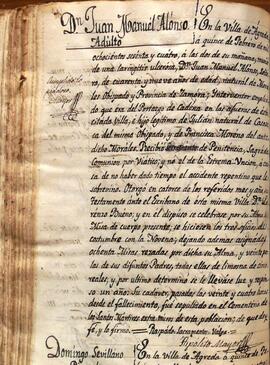 Dn Juan Manuel Alonso.
Adulto
En la Villa de Agreda
á quince de Febrero de mil
ochocientos sesenta y cuatro, á las dos de su mañana, murió
de una laringitis ulcerosa, Dn Juan Manuel Alonso, Soltero,
de cuarenta y nueve años de edad, natural de Mora-
les Obispado y Provincia de Zamora; Interventor emplea-
do que era del Portazgo de Cadena en las afueras de esta
citada villa; é hijo legitimo de Julian natural de
del mismo Obispado, y de Francisca Moreno del antedi-
dicho Morales. Recibió Penitencia, Sagrada
Comunion por Viatico, y no el de la Extrema-Uncion, á causa
de no haber dado tiempo el accidente repentino que le
sobrevino. Otorgó en catorce de los referidos mes y año
Testamento ante el Escribano de esta misma villa Dn
renzo Bueno; y en él dispuso se celebrase por su Alma
Misa de cuerpo presente, se hiciesen los tres oficios de
costumbre con la Novena; dejando ademas asignadas
ochenta Misas rezadas por dicha su Alma, y veinte por
las de sus difuntos Padres, todas ellas de limosna de cinco
reales; y por ultimo determinó se le llevase luz y
un año: su cadaver, pasadas las veinte y cuatro horas
desde el fallecimiento, fué sepultado en el Cementerio de
los Santos Martires extra muros de esta poblacion; de que doy
fé, y lo firmo.
Domingo Sevillano
En la Villa de Agreda á quince de